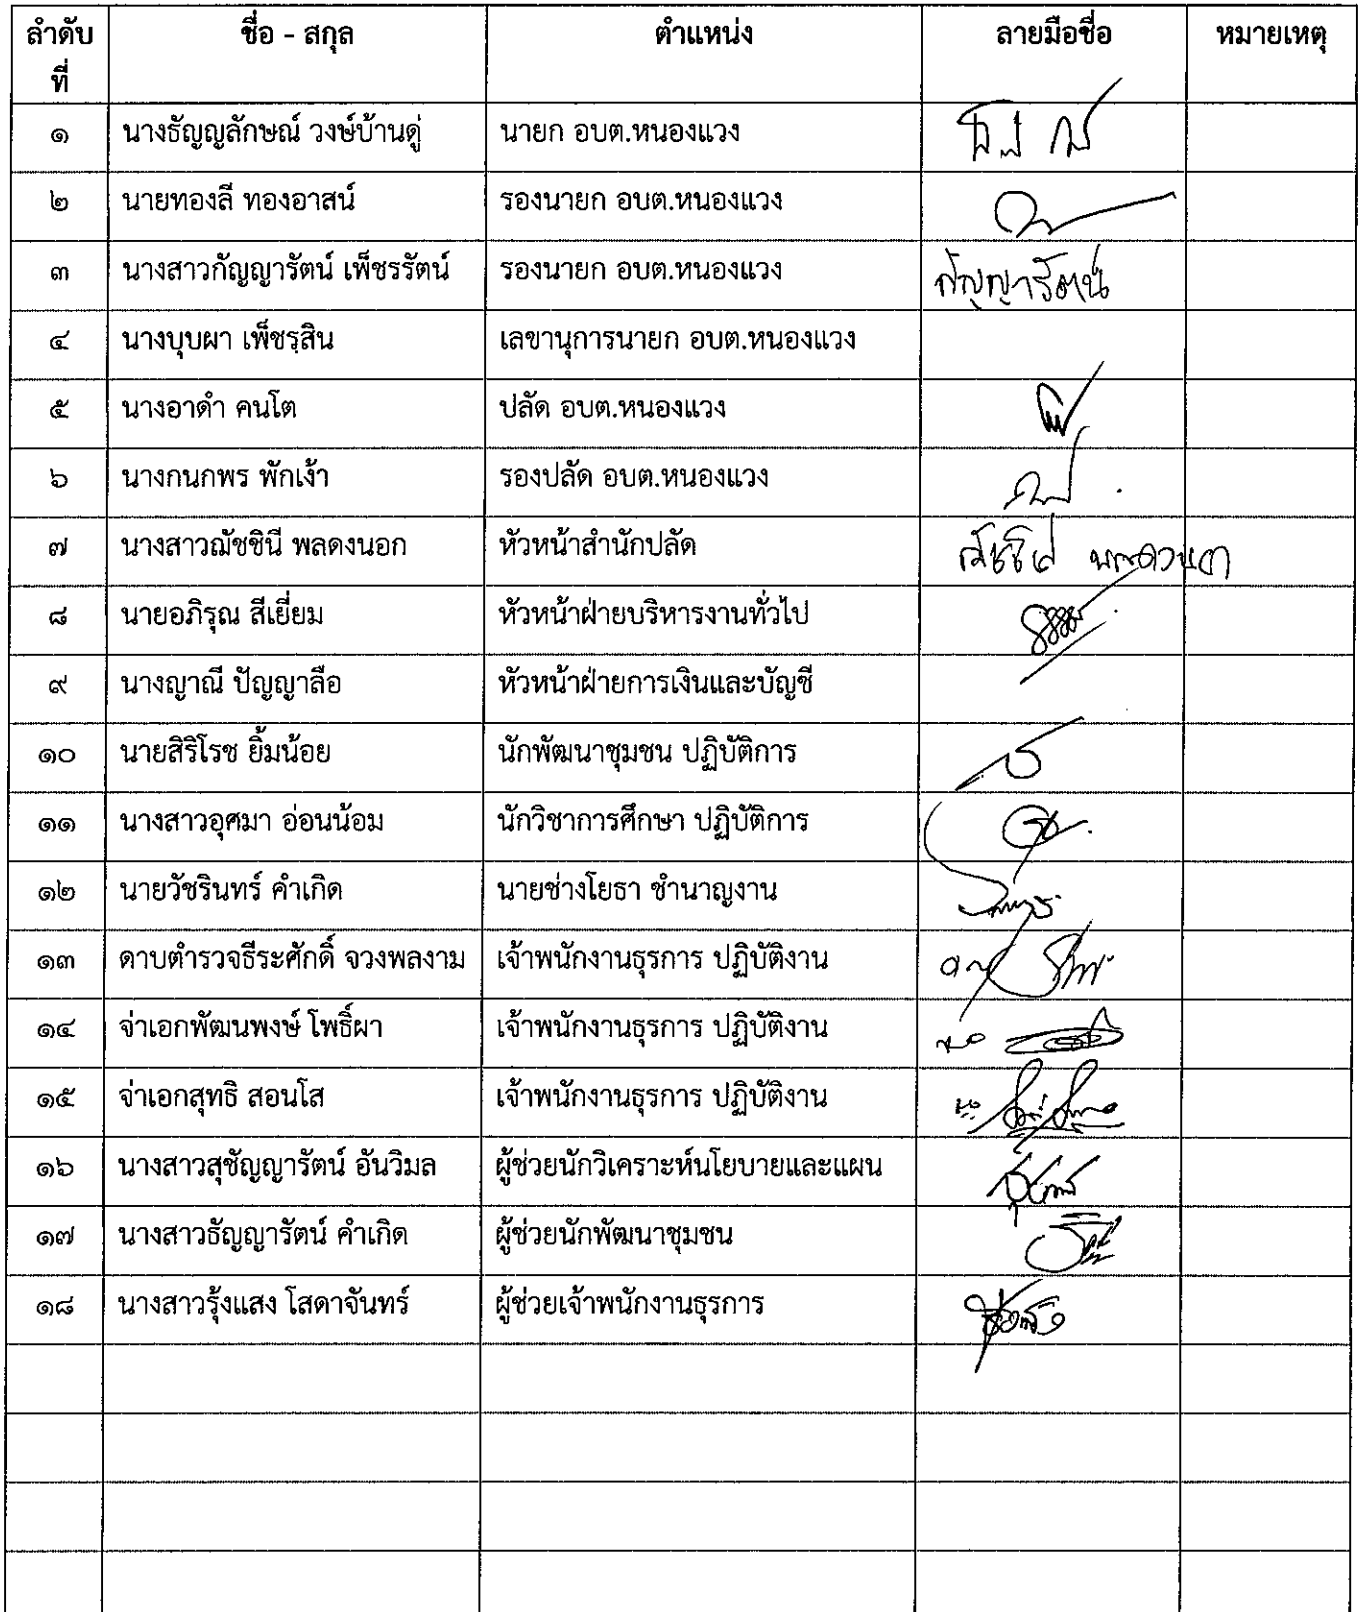 ลำดับ ชื่อ - สกุล ตำแหน่ง ลายมือชื่อ หมายเหตุ
ที่
๑ นางธัญญลักษณ์ วงษ์บ้านดู่ นายก อบต.หนองแวง
๒ นายทองลี ทองอาสน์ รองนายก อบต.หนองแวง
๓ นางสาวกัญญารัตน์ เพ็ชรรัตน์ รองนายก อบต.หนองแวง กัญญารัตน์
๔ นางบุบผา เพ็ชรุสิน เลขานุการนายก อบต.หนองแวง
๕ นางอาดำ คนโต ปลัด อบต.หนองแวง
๖ นางกนกพร พักเง้า รองปลัด อบต.หนองแวง
๗ นางสาวณัชชินี พลดงนอก หัวหน้าสำนักปลัด
๘ นายอภิรุณ สีเยี่ยม หัวหน้าฝ่ายบริหารงานทั่วไป
๙ นางญาณี ปัญญาลือ หัวหน้าฝ่ายการเงินและบัญชี
๑๐ นายสิริโรช ยิ้มน้อย นักพัฒนาชุมชน ปฏิบัติการ
๑๑ นางสาวอุศมา อ่อนน้อม นักวิชาการศึกษา ปฏิบัติการ
๑๒ นายวัชรินทร์ คำเกิด นายช่างโยธา ชำนาญงาน
๑๓ ดาบตำรวจธีระศักดิ์ จวงพลงาม เจ้าพนักงานธุรการ ปฏิบัติงาน
๑๔ จ่าเอกพัฒนพงษ์ โพธิ์ผา เจ้าพนักงานธุรการ ปฏิบัติงาน
๑๕ จ่าเอกสุทธิ สอนโส เจ้าพนักงานธุรการ ปฏิบัติงาน
๑๖ นางสาวสุชัญญารัตน์ อันวิมล ผู้ช่วยนักวิเคราะห์นโยบายและแผน
๑๗ นางสาวธัญญารัตน์ คำเกิด ผู้ช่วยนักพัฒนาชุมชน
๑๘ นางสาวรุ้งแสง โสดาจันทร์ ผู้ช่วยเจ้าพนักงานธุรการ